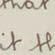 that
it th